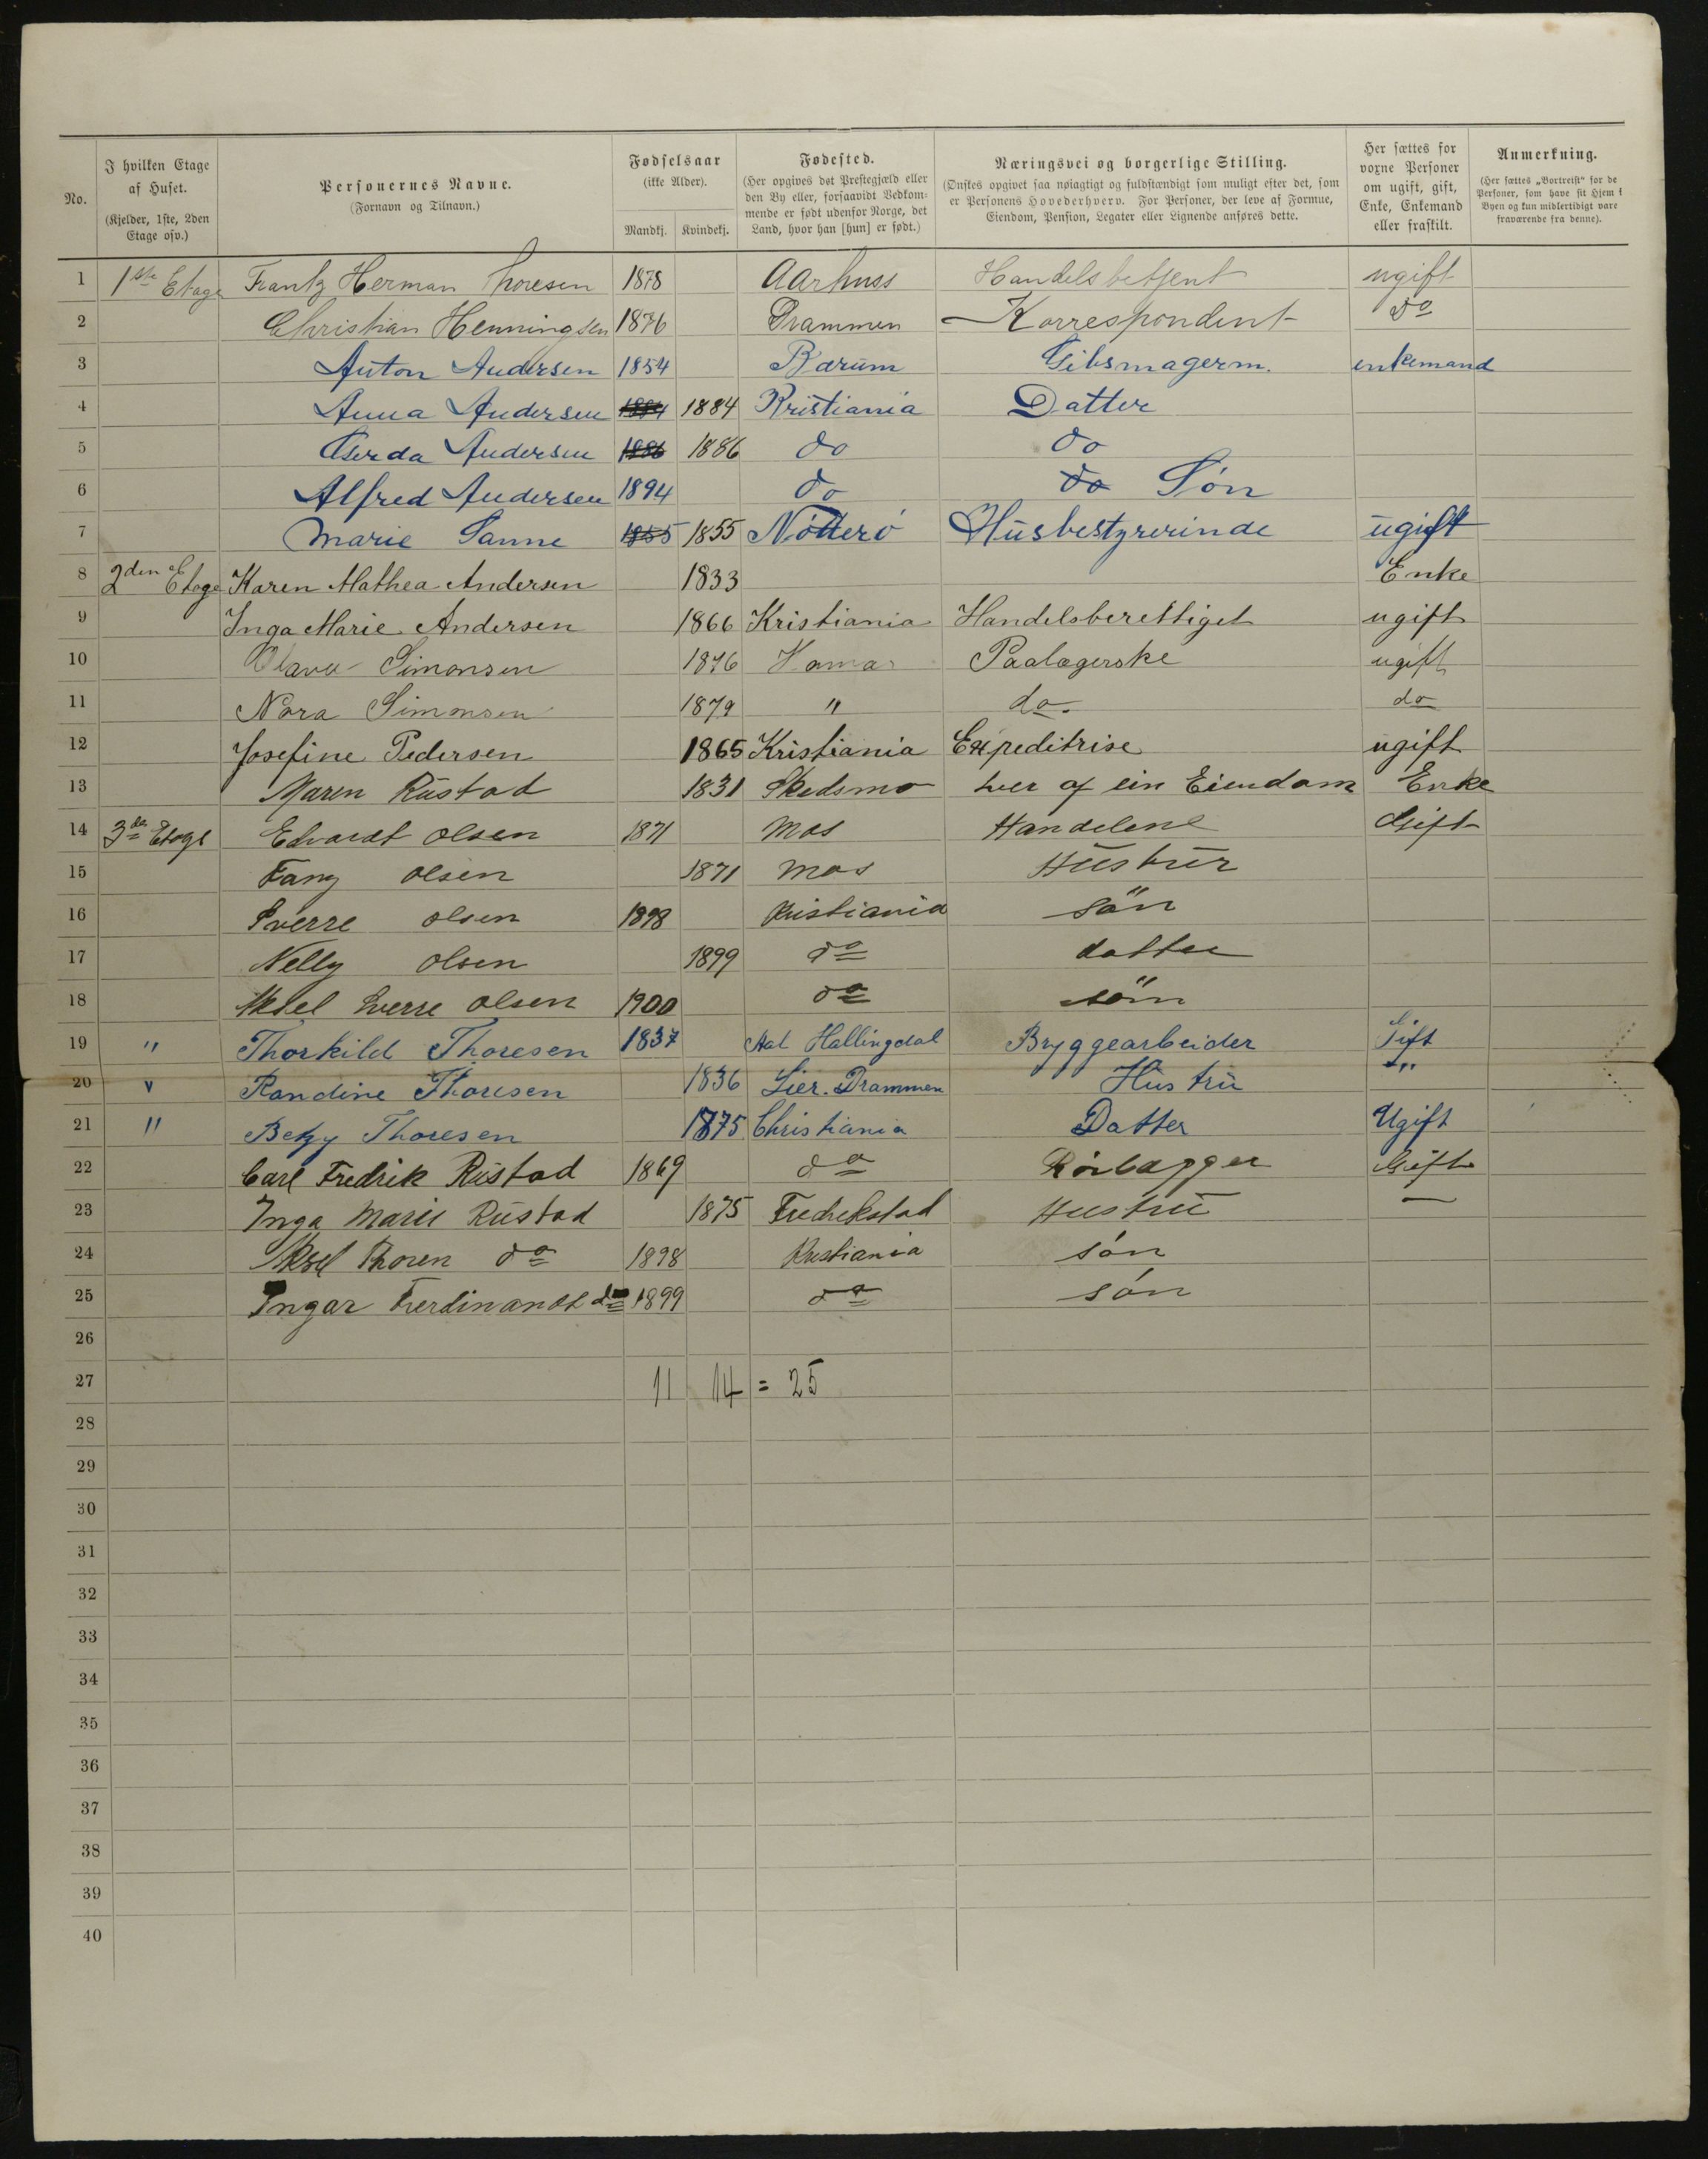 No.
I hvilken Etage af Huset. (Kjelder, 1ste, 2den Etage osv.)
Personernes Navne. (Fornavn og Tilnavn.)
Fødselsaar (ikke Alder). Mandkj. Kvindekj.
Fødested. (Her opgives det Prestegjæld eller den By eller, forsaavidt Vedkommende er født udenfor Norge, det Land, hvor han [hun] er født.)
Næringsvei og borgerlige Stilling. (Ønskes opgivet saa nøiagtigt og fuldstændigt som muligt efter det, som er Personens Hovederhverv. For Personer, der leve af Formue, Eiendom, Pension, Legater eller Lignende anføres dette.)
Her sættes for voxne Personer om ugift, gift, Enke, Enkemand eller fraskilt.
Anmerkning. (Her sættes „Bortreist“ for de Personer, som have sit Hjem i Byen og kun midlertidigt vare fraværende fra denne).
1 1ste Etage Frantz Herman Thoresen 1878 Aarhuss Handelsbetjent ugift
2 Christian Henningsen 1876 Drammen Korrespondent do
3 Anton Andersen 1854 Bærum Gibsmagerm. enkemand
4 Anna Andersen 1884 1884 Kristiania Datter
5 Gerda Andersen 1886 1886 do do
6 Alfred Andersen 1894 do do Søn
7 Marie Sanne 1855 1855 Nøtterø Husbestyrerinde ugift
8 2den Etage Karen Mathea Andersen 1833 Enke
9 Inga Marie Andersen 1866 Kristiania Handelsberettiget ugift
10 Olava Simonsen 1876 Hamar Paalægerske ugift
11 Nora Simonsen 1879 " do. do
12 Josefine Pedersen 1865 Kristiania Expeditrise ugift
13 Maren Rustad 1831 Skedsmo lver af ein Eiendom Enke
14 3de Etage Edvardt Olsen 1871 Mos Handelene Gift
15 Fany Olsen 1871 Mos Hustrur
16 Sverre Olsen 1898 Kristiania sön
17 Nelly Olsen 1899 do datter
18 Aksel Sverre Olsen 1900 do sön
19 " Thorkild Thoresen 1837 Aal Hallingdal Bryggearbeider Gift
20 " Randine Thoresen 1836 Lier. Drammen Hustru "
21 " Betzy Thoresen 1875 Christiania Datter Ugift
22 Carl Fredrik Rustad 1869 do Rörlægger Gift
23 Inga Marie Rustad 1875 Fredrekstad Hustru —
24 Aksel Thoren do 1898 Kristiania són
25 Ingar Ferdinandt do 1899 do són
26
27 11 14 = 25
28
29
30
31
32
33
34
35
36
37
38
39
40